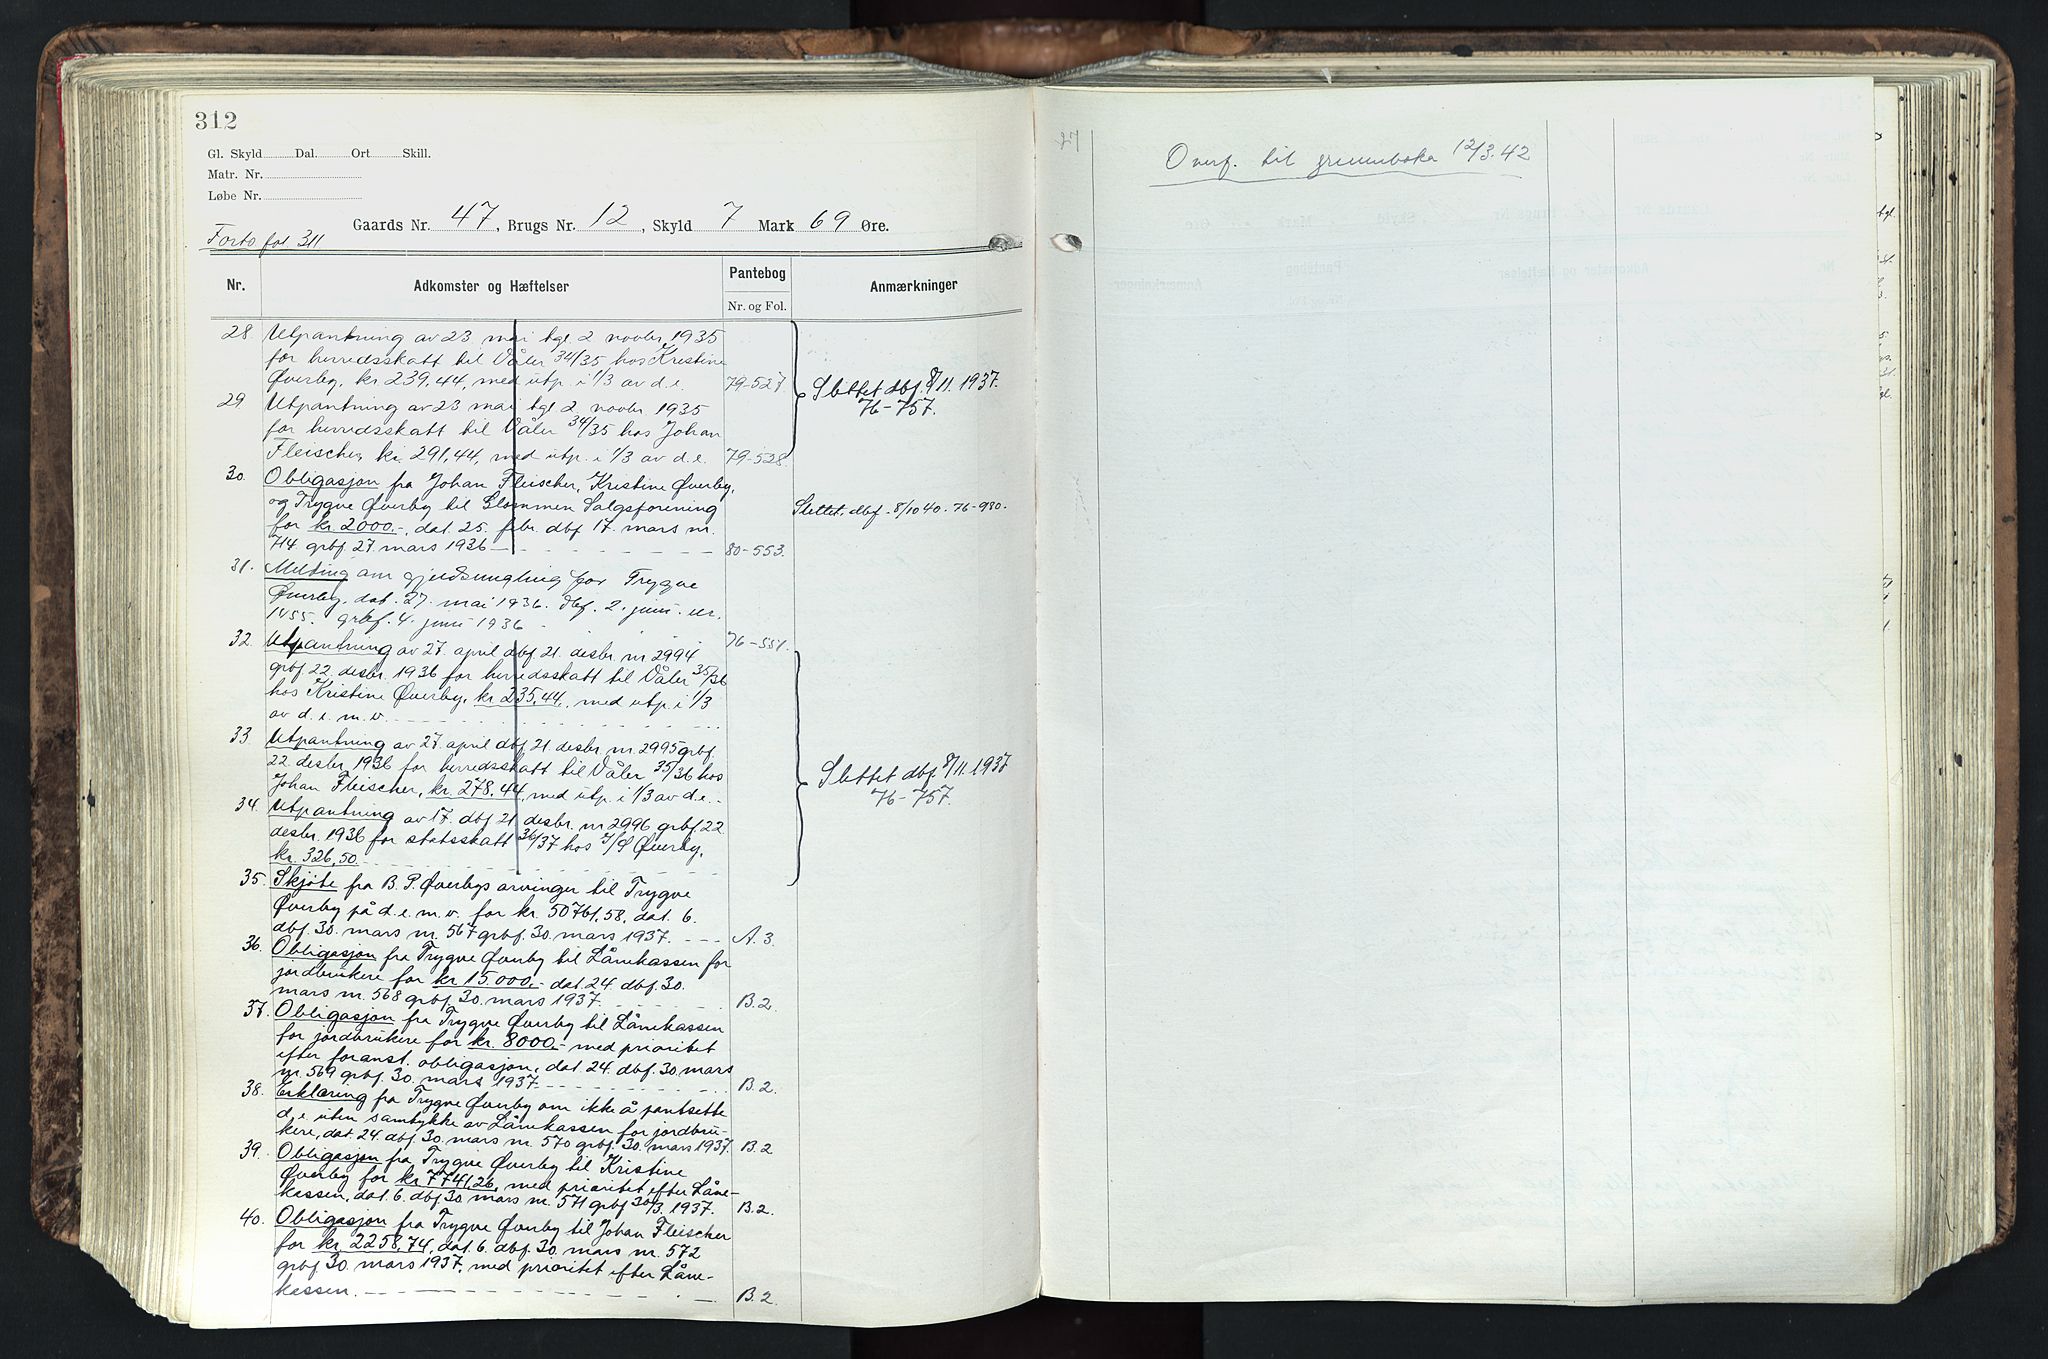 312
Gl. Skyld Dal. Ort Skill.
Matr. Nr.
Løbe Nr.
Gaards Nr. 47, Brugs Nr. 12, Skyld 7 Mark 69 Øre.
Forts fol 311
Nr. Adkomster og Hæftelser Pantebog Nr. og Fol. Anmærkninger
28. Utpantning av 23 mai tgl 2 novbr 1935
for herredsskatt til Våler 34/35 hos Kristine
Øverby, kr. 239,44, med utp. i 1/3 av d.e. 79-527.
Slettet dbf. 8/11.1937.
76-757.
29. Utpantning av 23 mai tgl 2 novbr 1935
for herredsskatt til Våler 34/35 hos Johan
Fleischer kr. 291,44, med utp. i 1/3 av d.e. 79-528.
30. Obligasjon fra Johan Fleischer, Kristine Øverby,
og Trygve Øverby til Glommen Salgsforening
for kr 2000.-, dat. 25. febr. dbf 17. mars nr.
714. grbf. 27. mars 1936 80-553.
Slettet. dbf. 8/10 40. 76-980.
31. Melding om gjeldsmegling for Trygve
Øverby, dat. 27. mai 1936. dbf. 2. juni. nr.
1455. grbf. 4. juni 1936. 76-551.
32. Utpantning av 27. april dbf 21. desbr. nr 2994
grbf 22. desbr. 1936 for herredsskatt til Våler 35/36
hos Kristine Øverby, kr. 235,44, med utp. i 1/3
av d.e. m.v.
33. Utpantning av 27. april dbf 21. desbr. nr. 2995 grbf
22. desbr. 1936 for herredsskatt til Våler 35/36 hos
Johan Fleischer, kr. 278,44, med utp. i 1/3 av d.e.
Slettet dbf. 8/11.1937
76-757.
34. Utpantning av 17. dbf 21 desbr. nr 2996 grbf. 22
desbr. 1936 for statsskatt 36/37 hos I/S Øverby,
kr. 326,50.
35. Skjøte fra B. P. Øverbys arvinger til Trygve
Øverby på d.e. m.v. for kr. 50761,58, dat. 6.
dbf. 30. mars nr. 567 grbf. 30. mars 1937. A. 3.
36. Obligasjon fra Trygve Øverby til Lånekassen for
jordbrukere for kr 15.000.- dat. 24. dbf. 30.
mars nr. 568 grbf. 30. mars 1937. B. 2.
37. Obligasjon fra Trygve Øverby til Lånekassen
for jordbrukere for kr. 8000.- med prioritet
efter foranst. obligasjon, dat. 24. dbf. 30. mars
nr. 569 grbf. 30. mars 1937. B. 2.
38. Erklæring fra Trygve Øverby om ikke å pantsette
d.e. uten samtykke av Lånekassen for jordbru-
kere, dat. 24. dbf. 30. mars nr. 570 grbf. 30. mars 1937. B. 2
39. Obligasjon fra Trygve Øverby til Kristine
Øverby for kr 7741,26, med prioritet efter Låne-
kassen, dat. 6. dbf. 30. mars nr. 571 grbf 30/3. 1937. B. 2.
40. Obligasjon fra Trygve Øverby til Johan Fleischer
for kr. 2258,74, dat. 6. dbf. 30. mars nr. 572
grbf. 30. mars 1937, med prioritet efter Låne-
kassen. B. 2.
Overf. til grunnboka 12/3.42